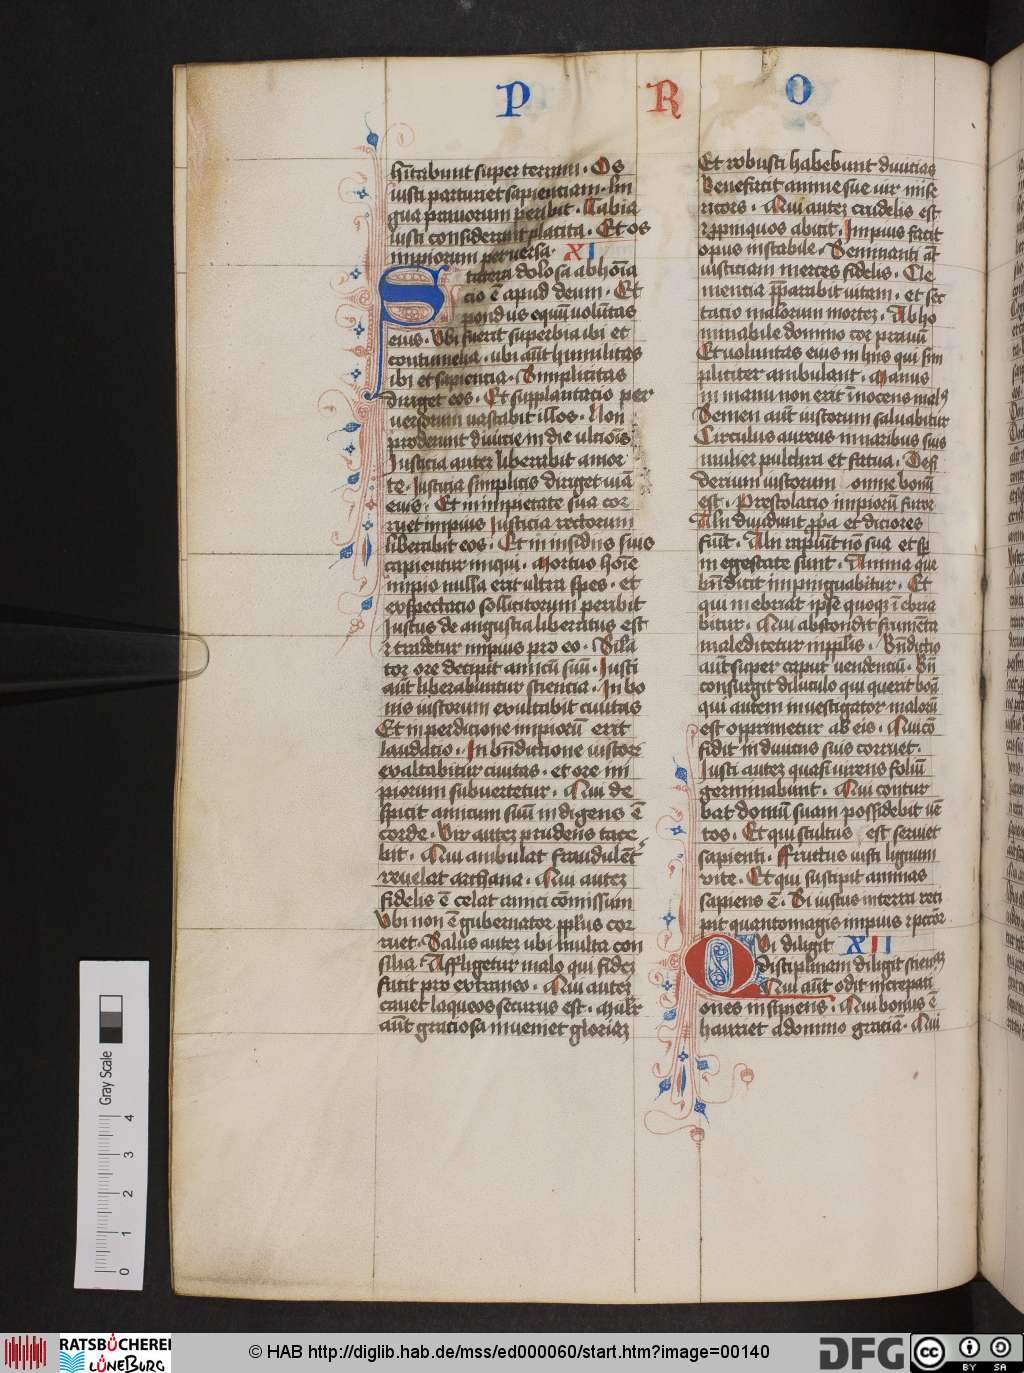 P R O
hitabunt super terram. Os
iusti parturiet sapientiam. lin
gua prauorum peribit. Labia
iusti considerant placita. Et os
impiorum peruersa. XI
Statera dolosa abhoīa
cio ē apud deum. Et
pondus equū uolūtas
eius. Vbi fuerit superbia ibi et
contumelia. ubi aūt humilitas
ibi et sapiencia. Simplicitas
diriget eos. Et supplantacio per
uersorum uastabit illos. Non
proderunt diuicie in die ultiōis
Iusticia autez liberabit a mor
te. Iusticia simplicis diriget uiā
eius. Et in impietate sua cor
ruet impius Iusticia rectorum
liberabit eos. Et in insidiis suis
capientur iniqui. Mortuo hoīe
impio nulla erit ultra spes. et
exspectacio sollicitorum peribit
Iustus de angustia liberatus est
et tradetur impius pro eo. Simla
tor ore decipit amicū suū. Iusti
aūt liberabuntur sciencia. In bo
nis iustorum exultabit ciuitas
Et in perdicione impiorū erit
laudacio. In bn̄dictione iustorz
exaltabitur ciuitas. et ore im
piorum subuertetur. Qui de
spicit amicum suū indigens ē
corde. Vir autez prudens tace
bit. Qui ambulat fraudulēt
reuelat archana. Qui autez
fidelis ē celat amici cōmissum
Vbi non ē gubernator ppl'us cor
ruet. Salus autez ubi multa con
silia. Affligetur malo qui fidez
facit pro extraneo. Qui autez
cauet laqueos securus est. Mulier
aūt graciosa inueniet gloriaz
Et robusti habebunt diuicias
Benefacit anime sue uir mise
ricors. Qui autez crudelis est
et ꝓpinquos abicit. Impius facit
opus instabile. Seminanti aūt
iusticiam merces fidelis. Cle
mencia p̄parabit uitam. et sec
tacio malorum mortez. Abho
minabile domino cor prauū
Et uoluntas eius in hiis qui sim
pliciter ambulant. Manus
in manu non erit īnocens mal9
Semen aūt iustorum saluabitur
Circulus aureus in naribus suis
mulier pulchra et fatua. Desi
derium iustorum omne bonū
est. Prestolacio impiorū furor
Alii diuidunt ꝓpa et diciores
fiūt. Alii rapiūt nō sua et sp̄
in egestate sunt. Anima que
bn̄dicit inpinguabitur. Et
qui inebriat ipse quoqz īebria
bitur. Qui abscondit frumēta
maledicetur in ppl'is. Bn̄dictio
aūt super caput uendenciū. Bn̄
consurgit diluculo qui querit boā
qui autem inuestigator malorū
est opprimetur ab eis. Qui cō
fidit in diuiciis suis corruet.
Iusti autez quasi uirens foliū
germinabunt. Qui contur
bat domū suam possidebit uē
tos. Et qui stultus est seruiet
sapienti. Fructus iusti lignum
vite. Et qui suscipit animas
sapiens ē. Si iustus in terra reci
pit quantomagis impius et pecōr
Qui diligit XII
disciplinam diligit scienc̄z
Qui aūt odit increpati
ones insipiens. Qui bonus ē
hauriet a domino graciā. Qui
Gray Scale
0 1 2 3 4
RATSBÜCHEREI
LÜNEBURG
© HAB http://diglib.hab.de/mss/ed000060/start.htm?image=00140
DFG
cc
BY SA